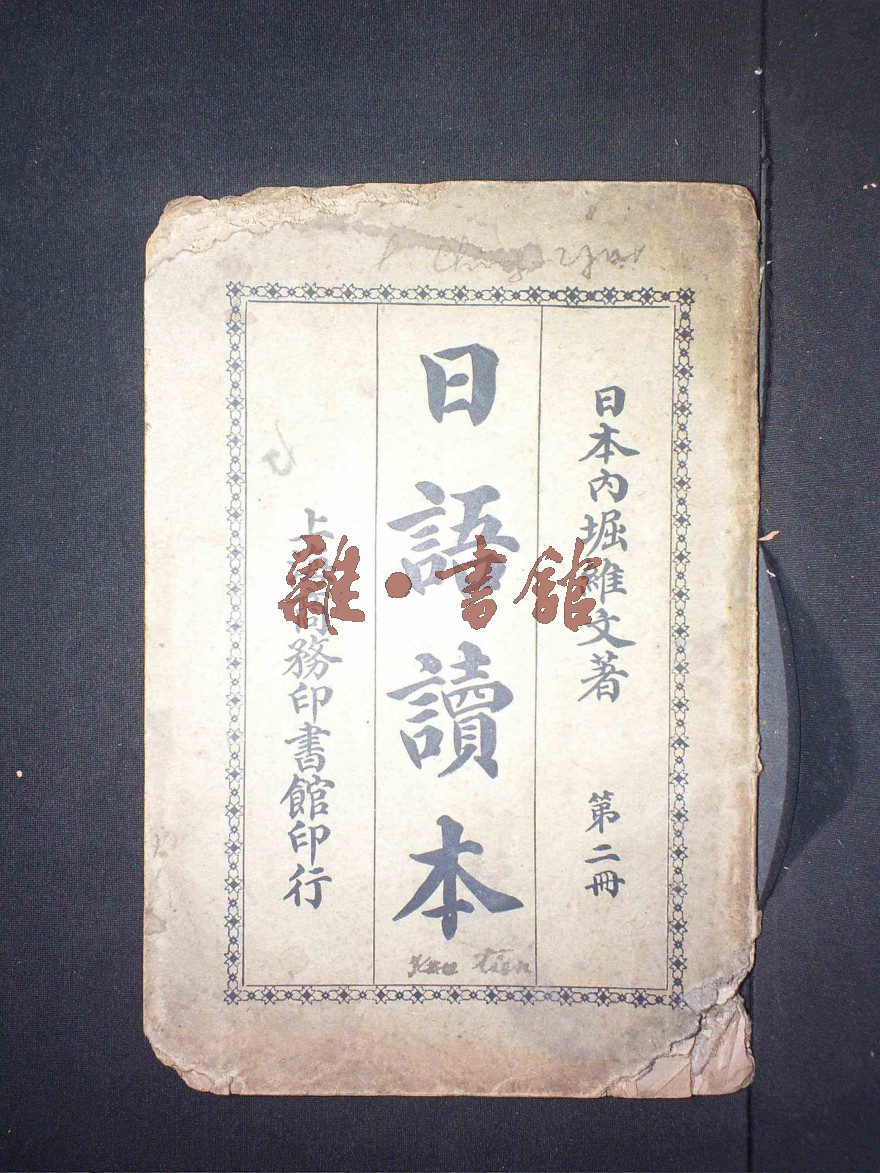 日本內堀維文著 第二冊
日語讀本
上海商務印書館印行
雜·書館
tien